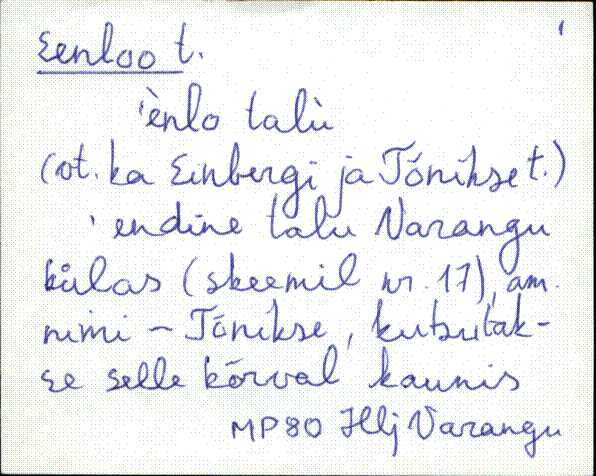 Eenloo t.
'ènlo talù
(vt. ka Einbergi ja Tõnikse t.)
' endine talu Varangu
külas (skeemil nr. 17), am.
nimi - Tõnikse, kutsutak-
se selle kõrval kaunis
MP80 Hlj Varangu